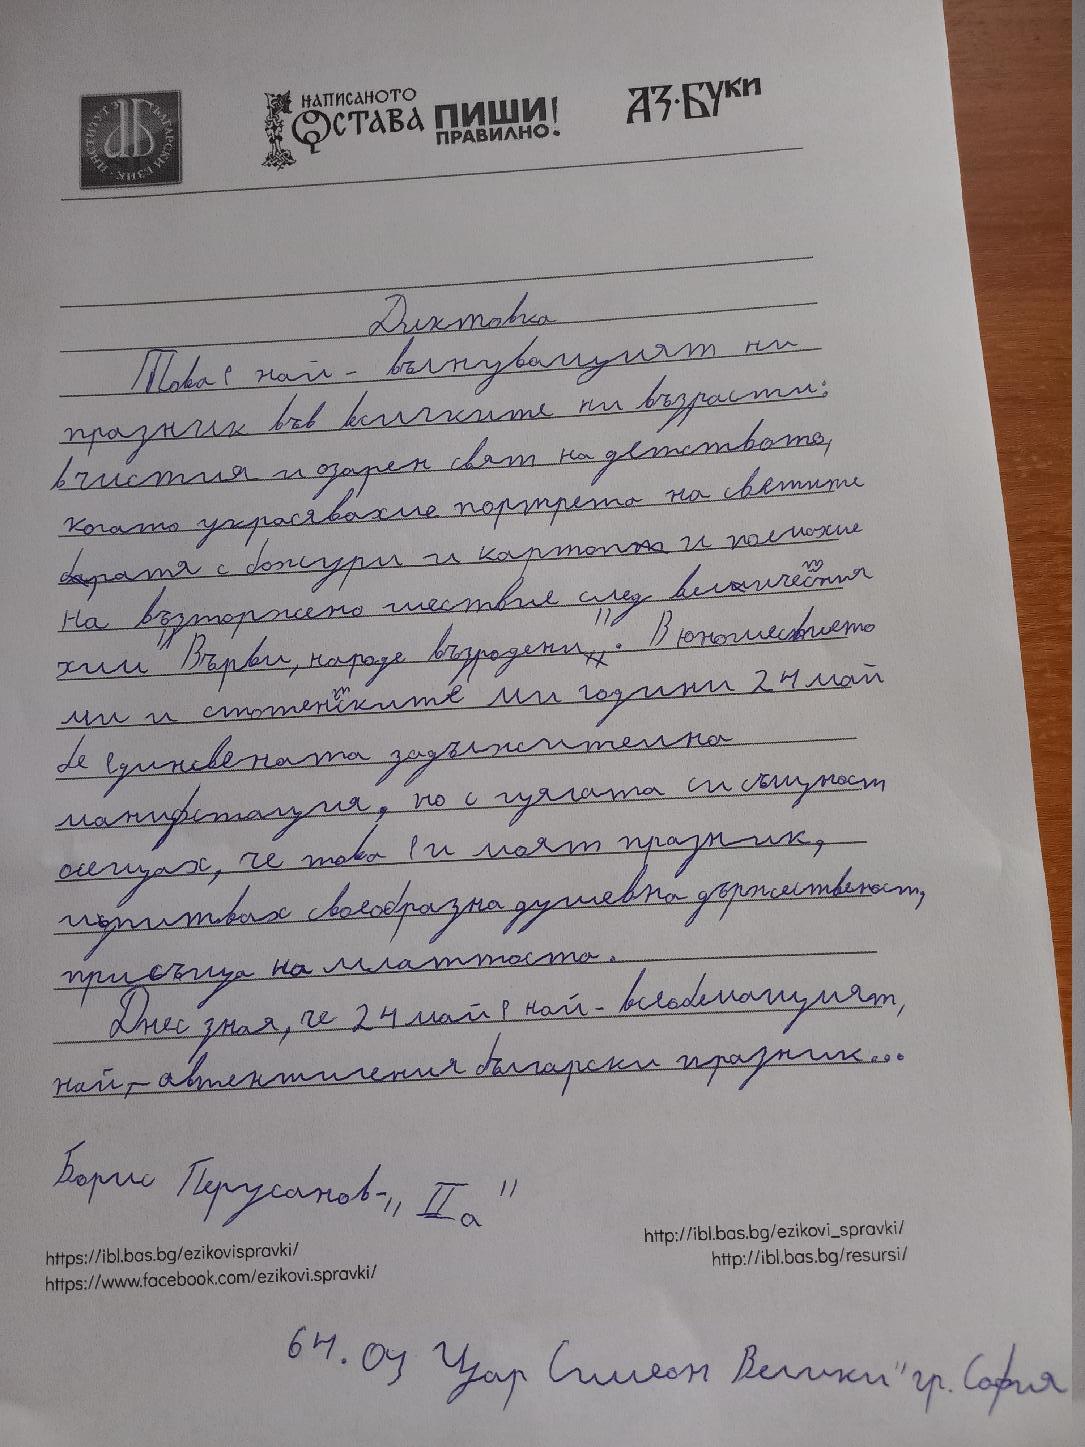 ИНСТИТУТ ЗА БЪЛГАРСКИ ЕЗИК
НАПИСАНОТО ОСТАВА ПИШИ ПРАВИЛНО!
АЗ·БУКИ
Диктовка
Това е най - вълнуващият ни
празник във всичките ни възрасти:
в чистия и озарен свят на детството,
когато украсявахме портрета на светите
братя с божури и картони и поемахме
на възторжено шествие след величествения
химн "Върви, народе възродени". В юношеството
ми и стотентските ми години 24 май
бе единсвената задължителна
манифстация, но с цялата си същност
осещах, че това е и моят празник,
изпитвах своеобразна душевна държественост,
присъща на млатостта.
Днес зная, че 24 май е най - всеобемащият,
най, - автентичения български празник...
Борис Перусанов - „IIа"
https://ibl.bas.bg/ezikovispravki/
https://www.facebook.com/ezikovi.spravki/
http://ibl.bas.bg/ezikovi_spravki/
http://ibl.bas.bg/resursi/
64. ОУ Цар Симеон Велики" гр. София